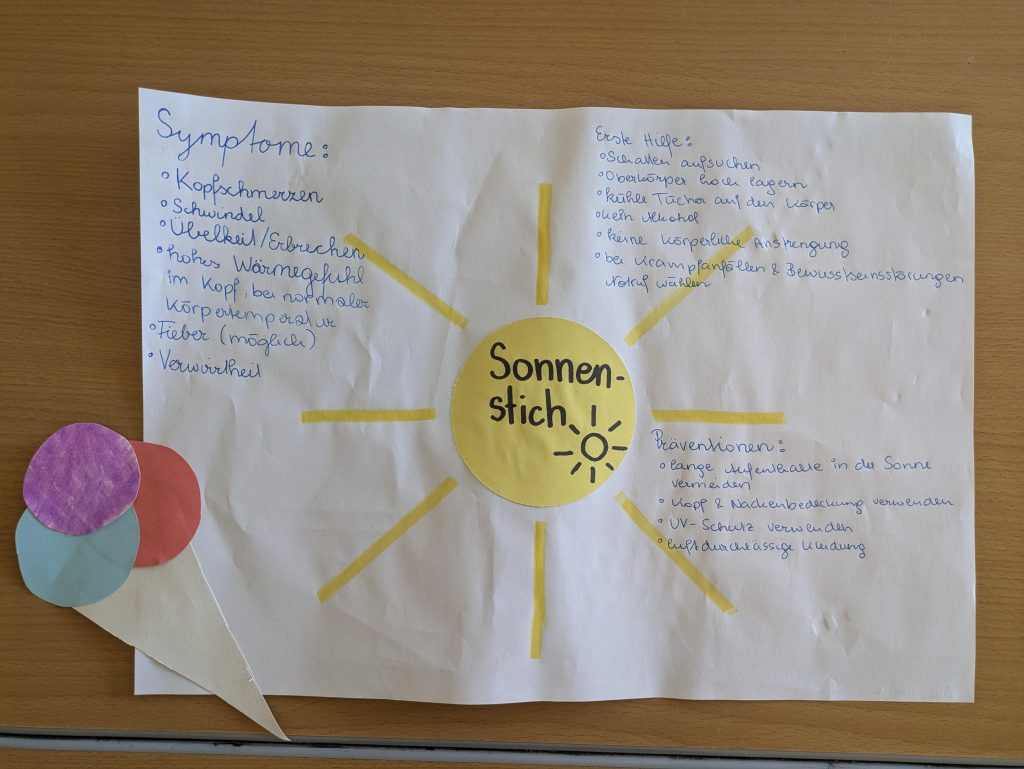 Symptome:
° Kopfschmerzen
° Schwindel
° Übelkeit/Erbrechen
° hohes Wärmegefühl
im Kopf, bei normaler
Körpertemperatur
° Fieber (möglich)
° Verwirrtheit
Erste Hilfe:
° Schatten aufsuchen
° Oberkörper hoch lagern
° kühle Tücher auf den Körper
° kein Alkohol
° keine körperliche Anstrengung
° bei Krampfanfällen & Bewusstseinsstörungen
Notruf wählen
Sonnen-
stich
Präventionen:
° lange Aufenthalte in der Sonne
vermeiden
° Kopf & Nackenbedeckung verwenden
° UV-Schutz verwenden
° luftdurchlässige Kleidung